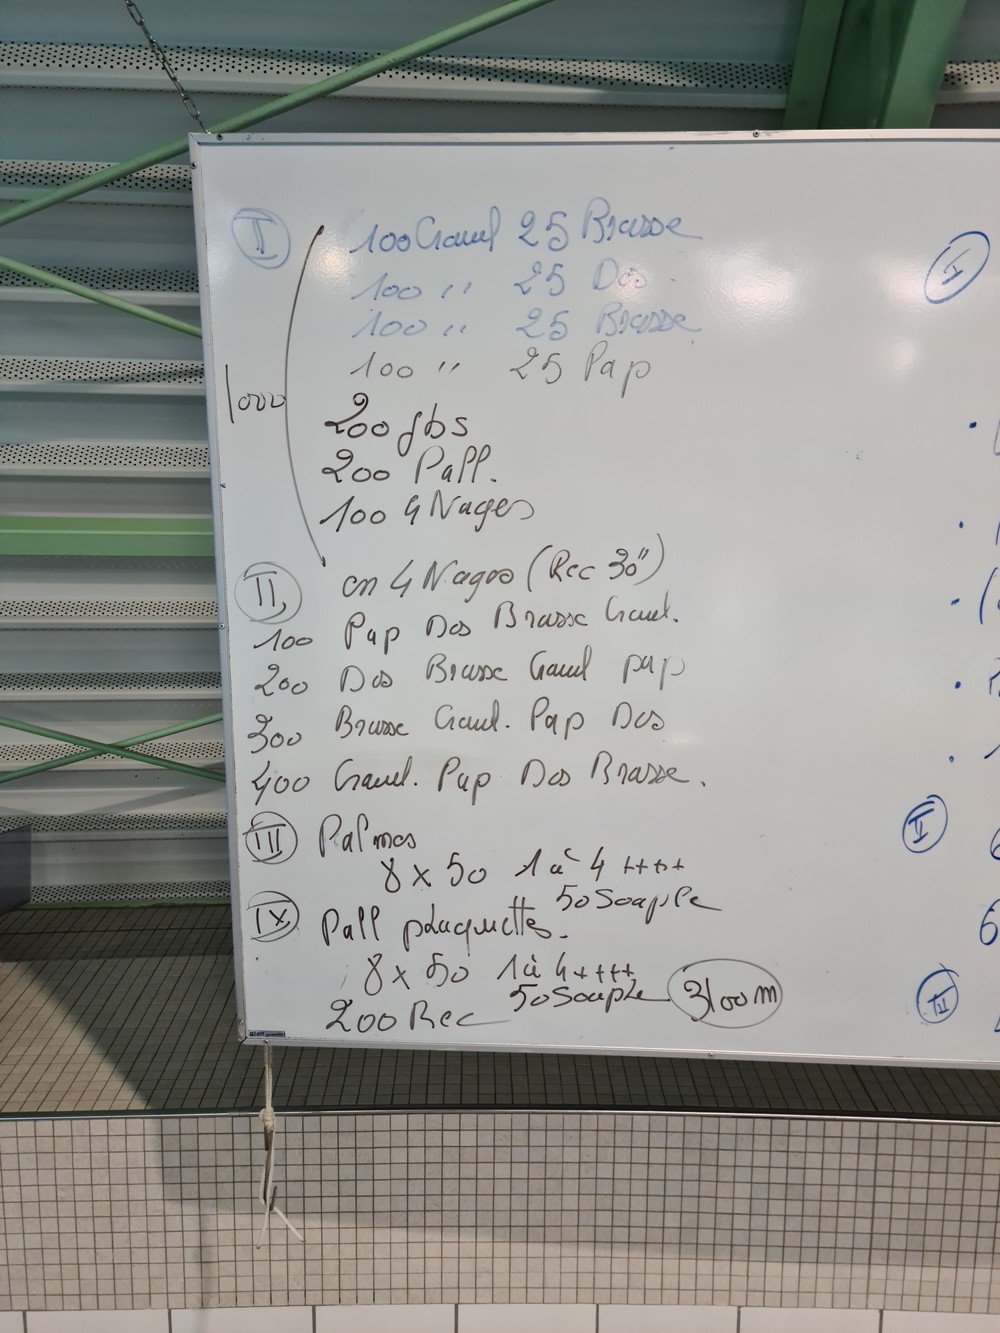 I 100 Crawl 25 Brasse
100 '' 25 Dos
100 '' 25 Brasse
100 '' 25 Pap
1000
200 jbs
200 Pall.
100 4 Nages
II en 4 Nages (Rec 30")
100 Pap Dos Brasse Crawl.
200 Dos Brasse Crawl pap
300 Brasse Crawl. Pap Dos
400 Crawl. Pap Dos Brasse.
III Palmes
8 x 50 1 à 4 ++++
50 Souple
IV Pall plaquettes.
8 x 50 1 à 4 ++++
50 Souple
200 Rec
3100 m
I
II
6
III